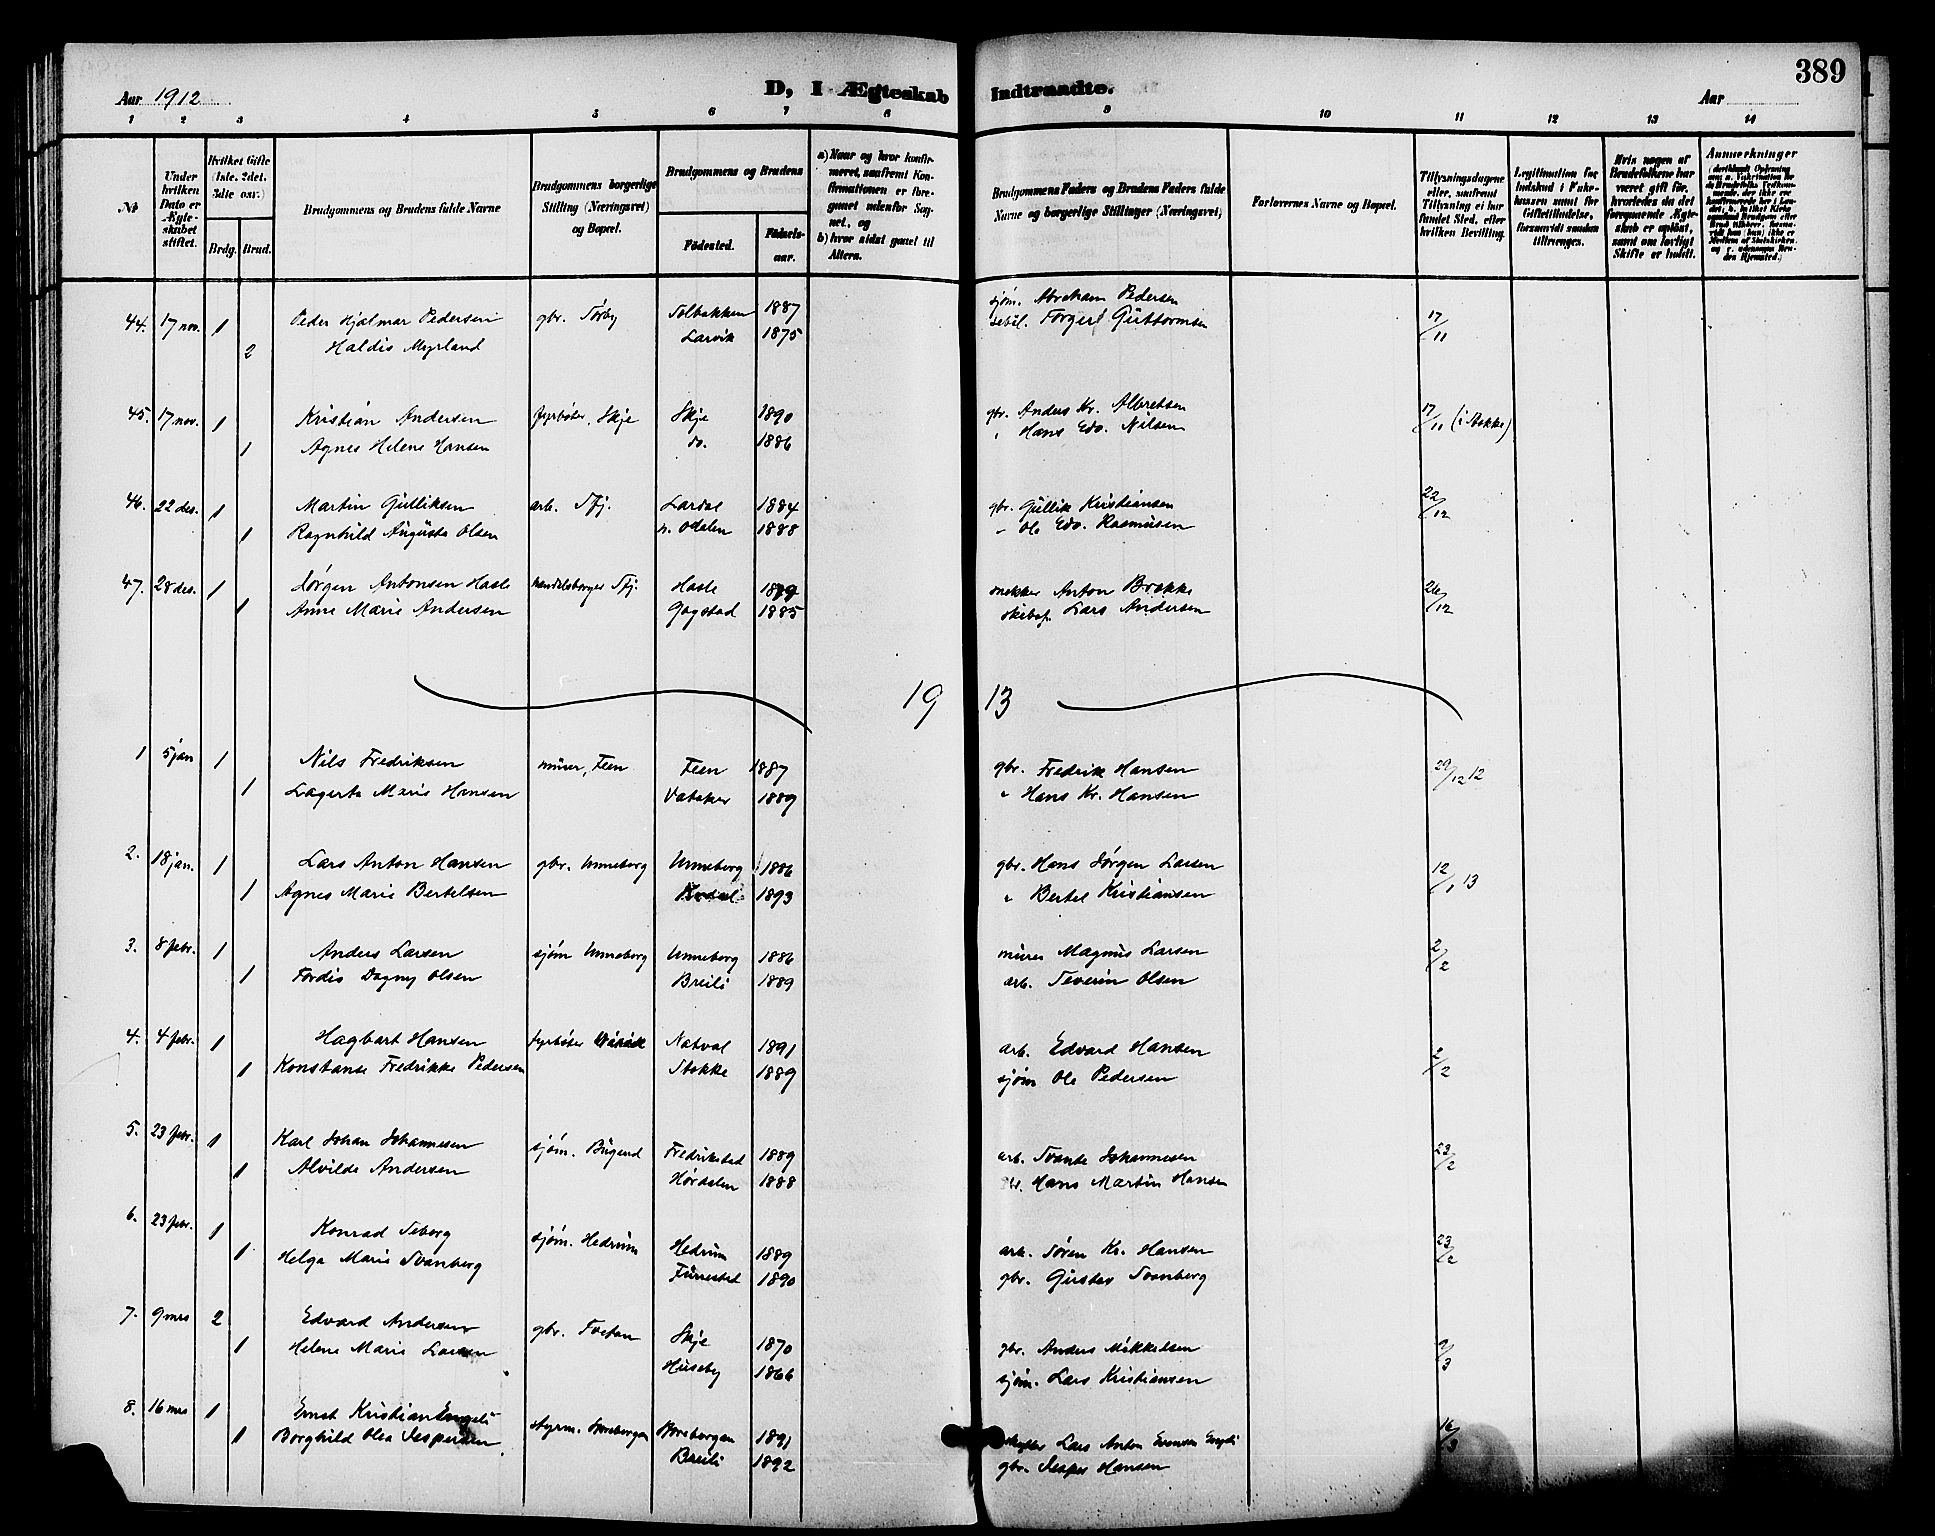 389
Aar 1912
D, I Ægteskab Indtraadte.
Aar
1 2 3 4 5 6 7 8 9 10 11 12 13 14
№
Under hvilken Dato er Ægteskabet stiftet.
Hvilket Gifte (1ste, 2det, 3die osv.)
Brdg. Brud.
Brudgommens og Brudens fulde Navne
Brudgommens borgerlige Stilling (Næringsvei) og Bopæl.
Brudgommens og Brudens
Fødested. Fødselsaar.
a) Naar og hvor konfirmeret, saafremt Konfirmationen er foregaaet udenfor Sognet, og
b) hvor sidst gaaet til Alters.
Brudgommens Faders og Brudens Faders fulde Navne og borgerlige Stillinger (Næringsvei)
Forlovernes Navne og Bopæl.
Tillysningsdagene eller, saafremt Tillysning ei har fundet Sted, efter hvilken Bevilling.
Legitimation for Indskud i Enkekassen samt for Giftetilladelse, forsaavidt saadan tiltrænges.
Hvis nogen af Brudefolkene har været gift før, hvorledes da det foregaaende Ægteskab er opløst, samt om lovligt Skifte er holdt.
Anmerkninger
44. 17 nov. 1 Peder Hjalmar Pedersen gbr. Sørby Solbakken 1887 sjøm. Abraham Pedersen 17/11
2 Haldis Myrland Larvik 1875 Torger Guttormsen
45. 17 nov. 1 Kristian Andersen fyrbøter, Skje Skje 1890 gbr. Anders Kr. Albretsen 17/11 (i Stokke)
1 Agnes Helene Hansen do. 1886 " Hans Edv. Nilsen
46. 22 des. 1 Martin Gulliksen arb. Sfj. Lardal 1884 gbr. Gullik Kristiansen 22/12
1 Ragnhild Augusta Olsen n. Odalen 1888 - Ole Edv. Rasmusen
47. 28 des. 1 Jørgen Antonsen Hasle handelsborger Sfj. Hasle 1879 snekker Anton Brekke 26/12
1 Anne Marie Andersen Gogstad 1885 skibsf. Lars Andersen
1913
1 5 jan 1 Nils Fredriksen murer, Feen Feen 1887 gbr. Fredrik Hansen 29/12 12
1 Lagerta Marie Hansen Vataker 1889 " Hans Kr. Hansen
2. 18 jan. 1 Lars Anton Hansen gbr. Unneberg Unneberg 1886 gbr. Hans Jørgen Larsen 12/1 13
1 Agnes Marie Bertelsen Kodal 1893 " Bertel Kristiansen
3. 8 febr. 1 Anders Larsen sjøm Unneberg Unneberg 1886 murer Magnus Larsen 2/2
1 Tordis Dagny Olsen Breili 1889 arb. Severin Olsen
4. 4 febr. 1 Hagbart Hansen fyrbøter Natval 1891 arb. Edvard Hansen 2/2
1 Konstanse Fredrikke Pedersen Stokke 1889 sjøm Ole Pedersen
5. 23 febr. 1 Karl Johan Johannesen sjøm. Bugend Fredrikstad 1889 arb. Svante Johannesen 23/2
1 Alvilde Andersen Hørdalen 1888 gbr. Hans Martin Hansen
6. 23 febr. 1 Konrad Seberg sjøm. Hedrum Hedrum 1889 arb. Søren Kr. Hansen 23/2
1 Helga Marie Svanberg Furrestad 1890 gbr. Gustav Svanberg
7. 9 mrs 2 Edvard Andersen gbr. Tveitan Skje 1870 gbr. Anders Mikkelsen 9/3
1 Helene Marie Larsen Huseby 1866 sjøm. Lars Kristiansen
8. 16 mrs 1 Ernst Kristian Engeli styrm. 1891 Lars Anton Evensen Engeli 16/3
1 Borghild Olea Jespersen Breili 1892 gbr. Jesper Hansen